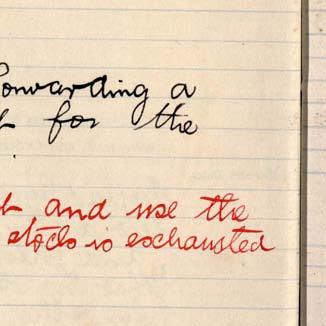 forwarding a
for the
and use the
stocks is exchausted